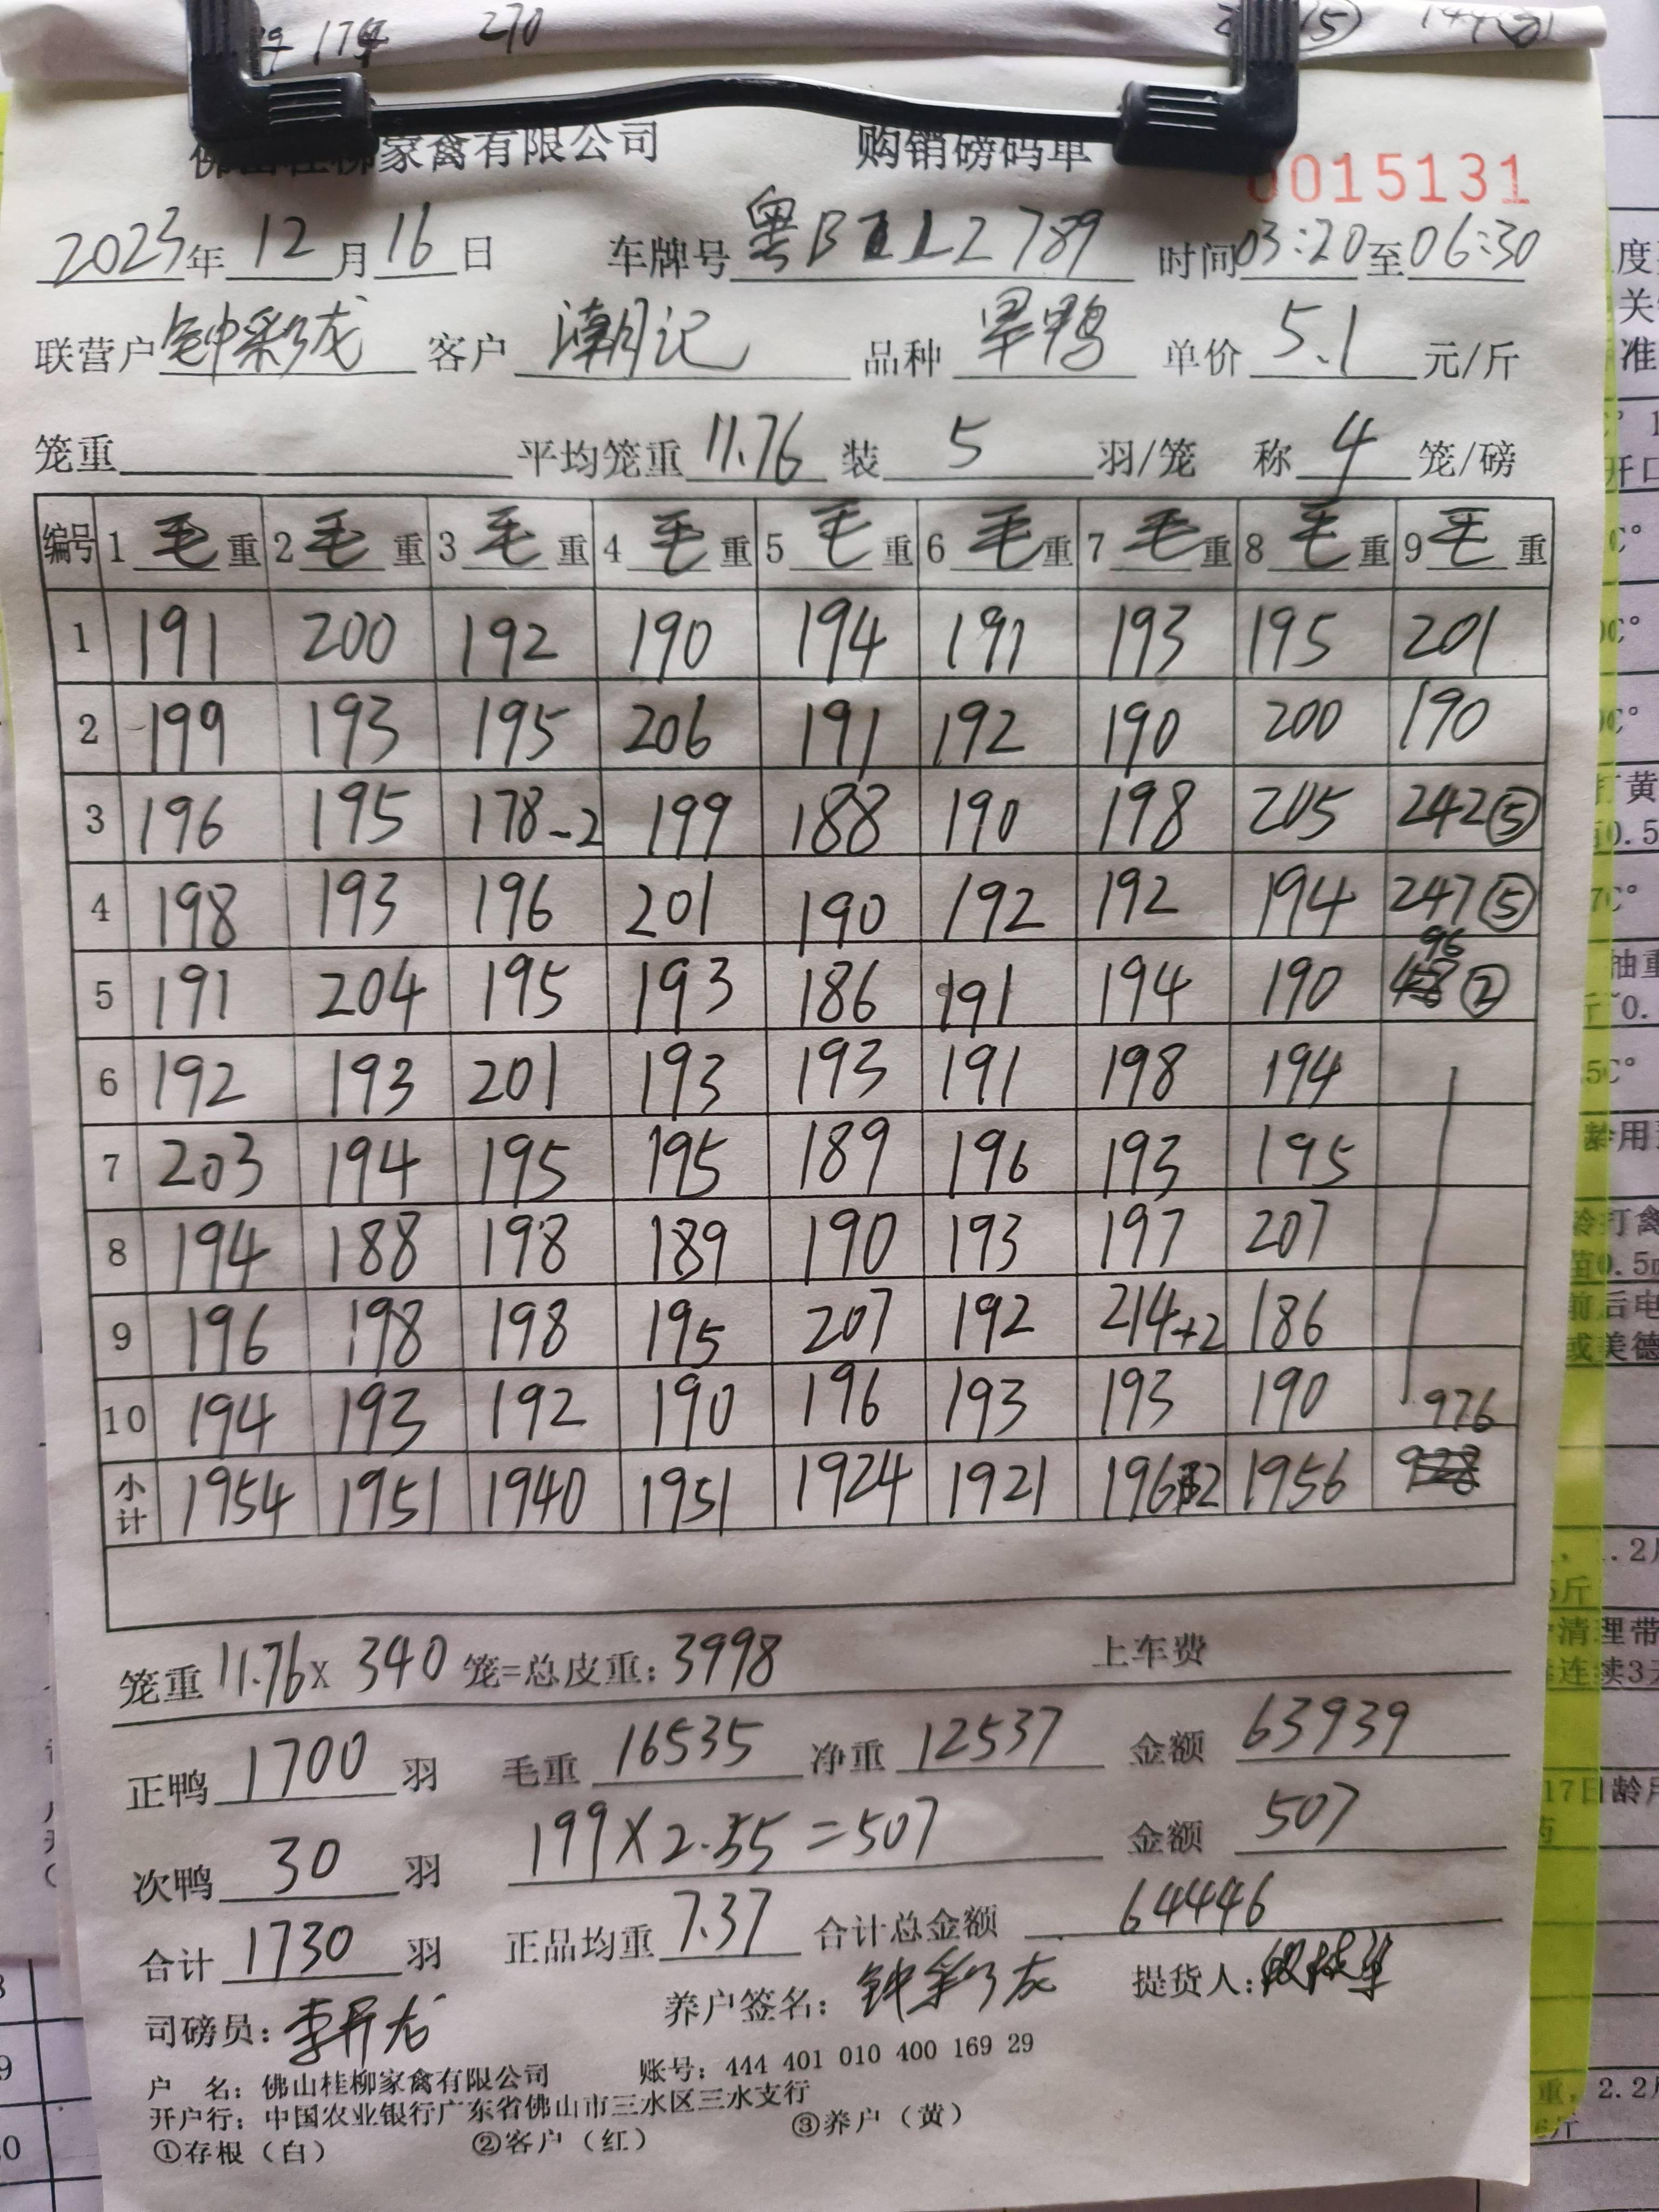 174 270
佛山桂柳家禽有限公司 购销磅码单 0015131
2023年12月16日 车牌号 粤B 789 时间03:20至06:30
联营户 钟彩龙 客户 潮记 品种 旱鸭 单价 5.1 元/斤
笼重 平均笼重 11.76 装 5 羽/笼 称 4 笼/磅
编号 1 毛 重 2 毛 重 3 毛 重 4 毛 重 5 毛 重 6 毛 重 7 毛 重 8 毛 重 9 毛 重
1 191 200 192 190 194 191 193 195 201
2 199 193 195 206 191 192 190 200 190
3 196 195 178-2 199 188 190 198 205 242⑤
4 198 193 196 201 190 192 192 194 247⑤
5 191 204 195 193 186 191 194 190 96 ②
6 192 193 201 193 193 191 198 194
7 203 194 195 195 189 196 193 195
8 194 188 198 189 190 193 197 207
9 196 198 198 195 207 192 214+2 186
10 194 193 192 190 196 193 193 190 976
小计 1954 1951 1940 1951 1924 1921 1962 1956 928
笼重 11.76 x 340 笼=总皮重: 3998 上车费
正鸭 1700 羽 毛重 16535 净重 12537 金额 63939
次鸭 30 羽 199×2.55=507 金额 507
合计 1730 羽 正品均重 7.37 合计总金额 64446
司磅员: 李开龙 养户签名: 钟彩龙 提货人:
户 名: 佛山桂柳家禽有限公司 账号: 444 401 010 400 169 29
开户行: 中国农业银行广东省佛山市三水区三水支行
①存根（白） ②客户（红） ③养户（黄）